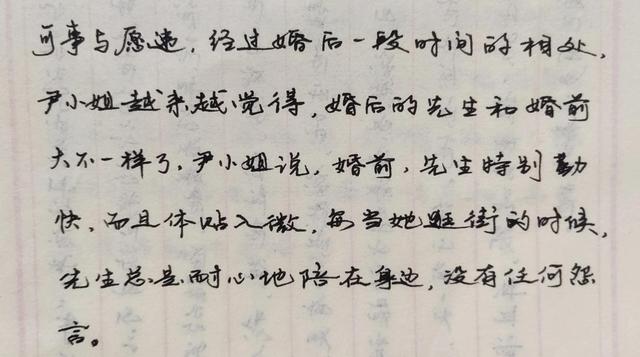 可事与愿违，经过婚后一段时间的相处，
尹小姐越来越觉得，婚后的先生和婚前
大不一样了，尹小姐说，婚前，先生特别勤
快，而且体贴入微，每当她逛街的时候，
先生总是耐心地陪在身边，没有任何怨
言。